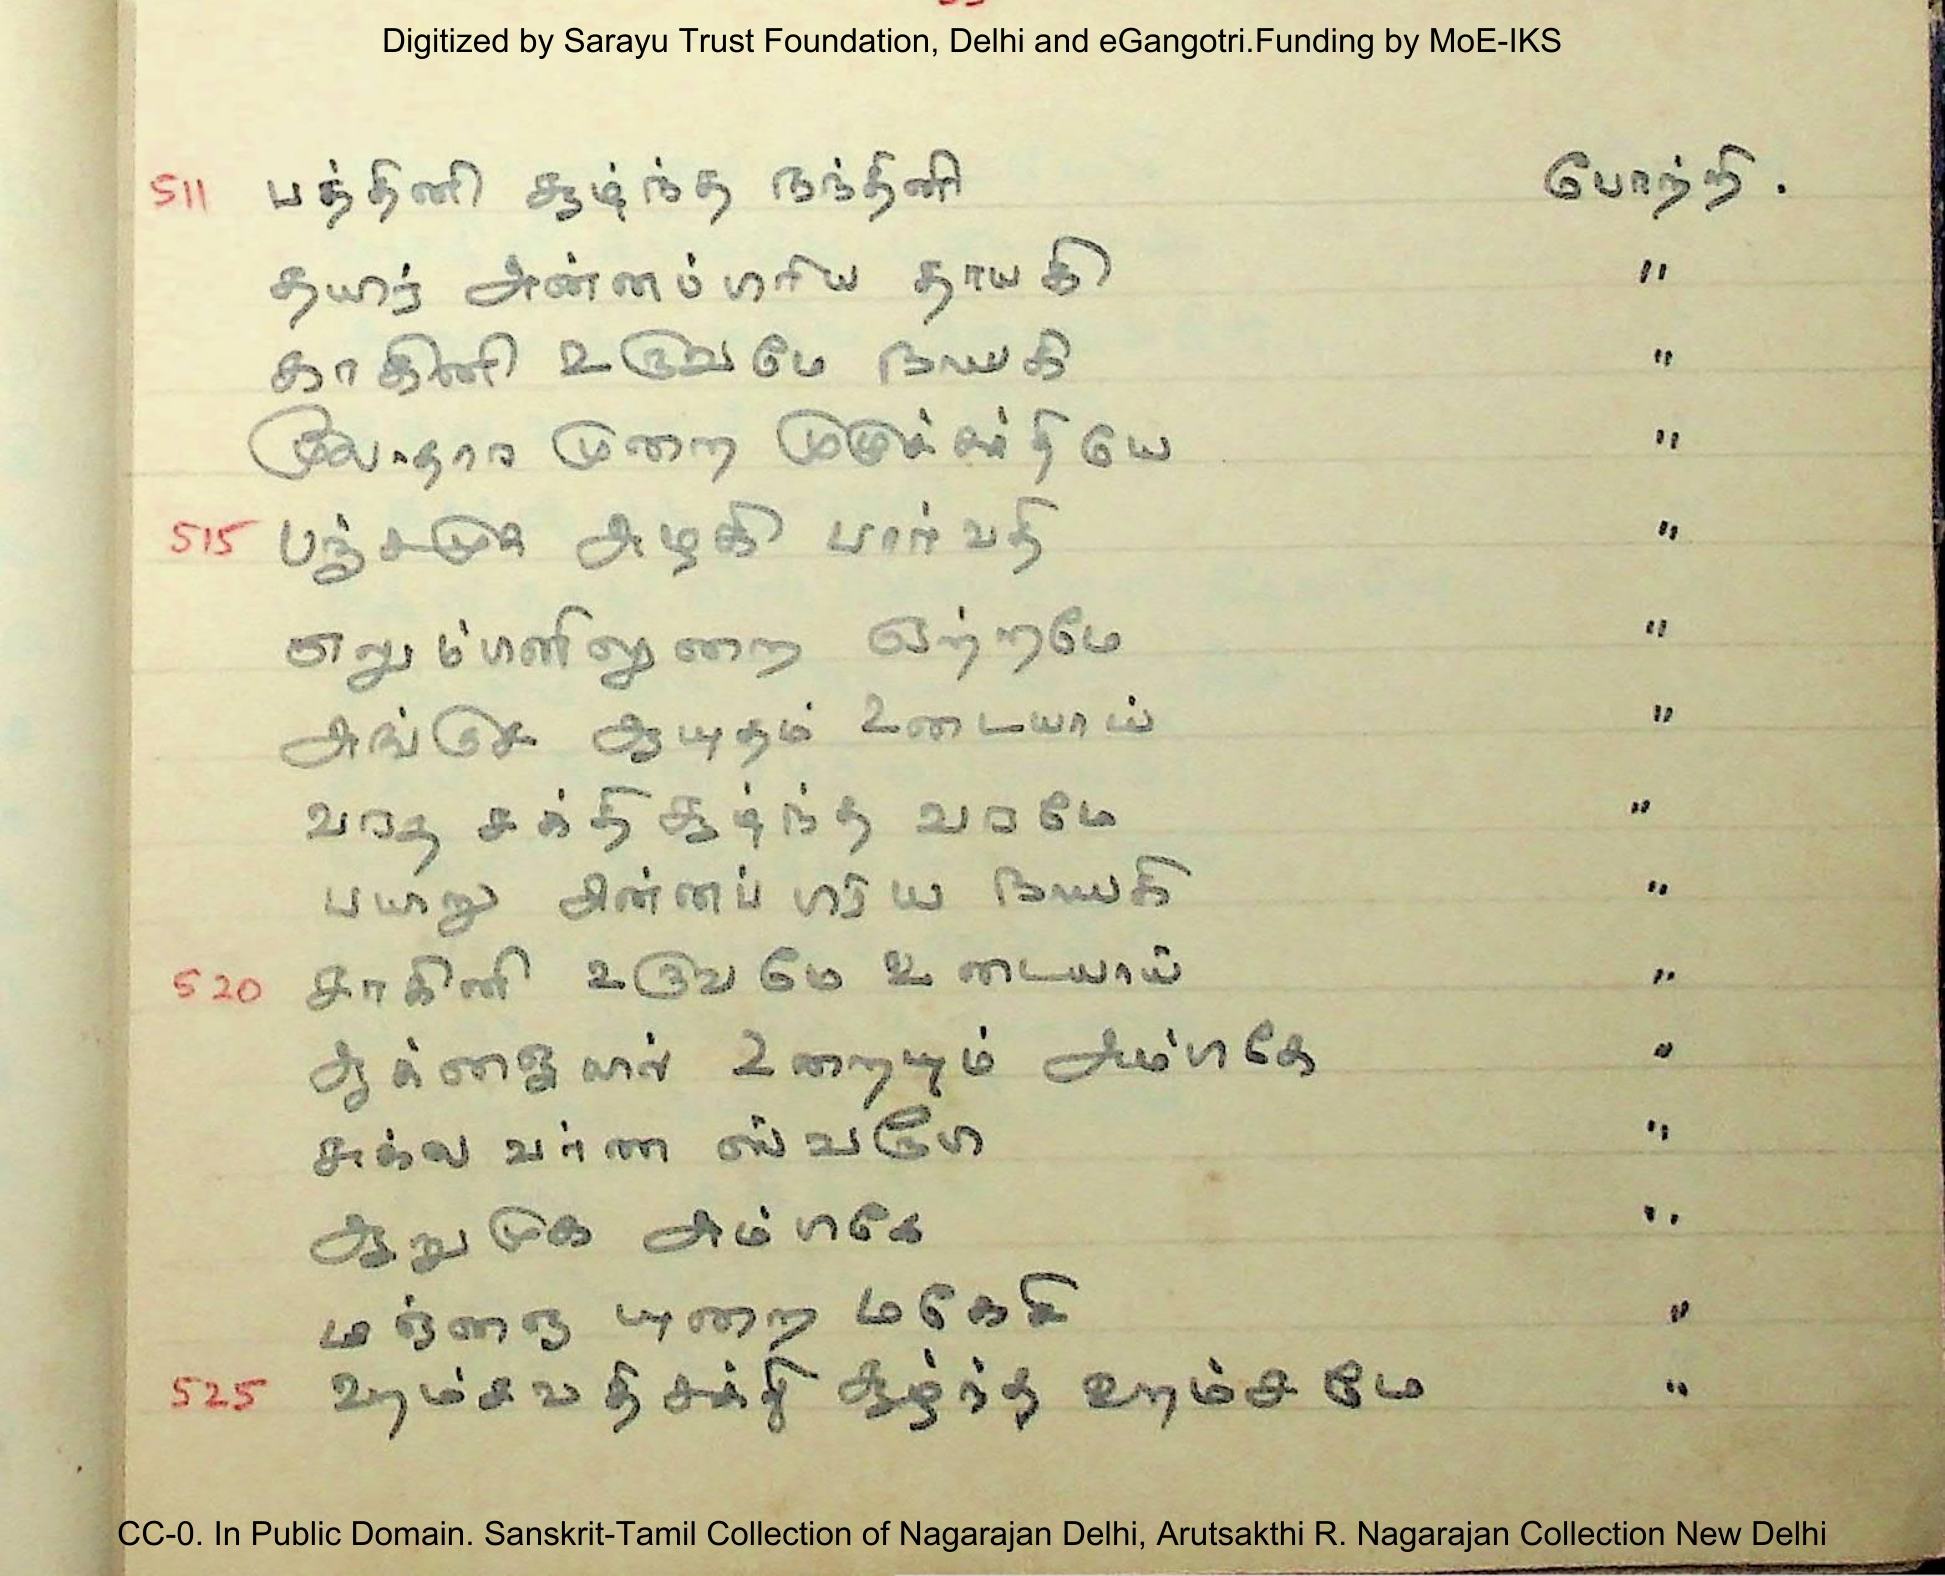 Digitized by Sarayu Trust Foundation, Delhi and eGangotri.Funding by MoE-IKS
511 பத்தினி சூழ்ந்த நந்தினி போற்றி.
தயிர் அன்னப்பிரிய தாயகி "
காகினி உருவமே நாயகி "
மூலாதார முறை முமுக்சுத்தியே "
515 பஞ்சமுக அழகி பார்வதி "
எலும்பனிலுறை ஏற்றமே "
அங்குச ஆயுதம் உடையாய் "
வரத சக்தி சூழ்ந்த வரமே "
பயறு அன்னப்பிரிய நாயகி "
520 சாகினி உருவமே உடையாய் "
ஆக்ஞையில் உறையும் அம்பிகே "
சுக்ல வர்ண ஸ்வரூபி "
ஆறுமுக அம்பிகே "
மஜ்ஜை யுறை மகேசி "
525 ஹம்சவதி சக்தி சூழ்ந்த ஹம்சமே "
CC-0. In Public Domain. Sanskrit-Tamil Collection of Nagarajan Delhi, Arutsakthi R. Nagarajan Collection New Delhi